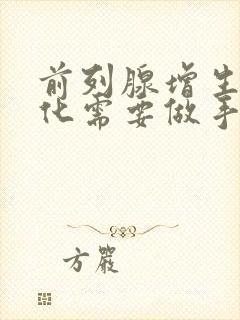 前列腺增生
化需要做手
方严